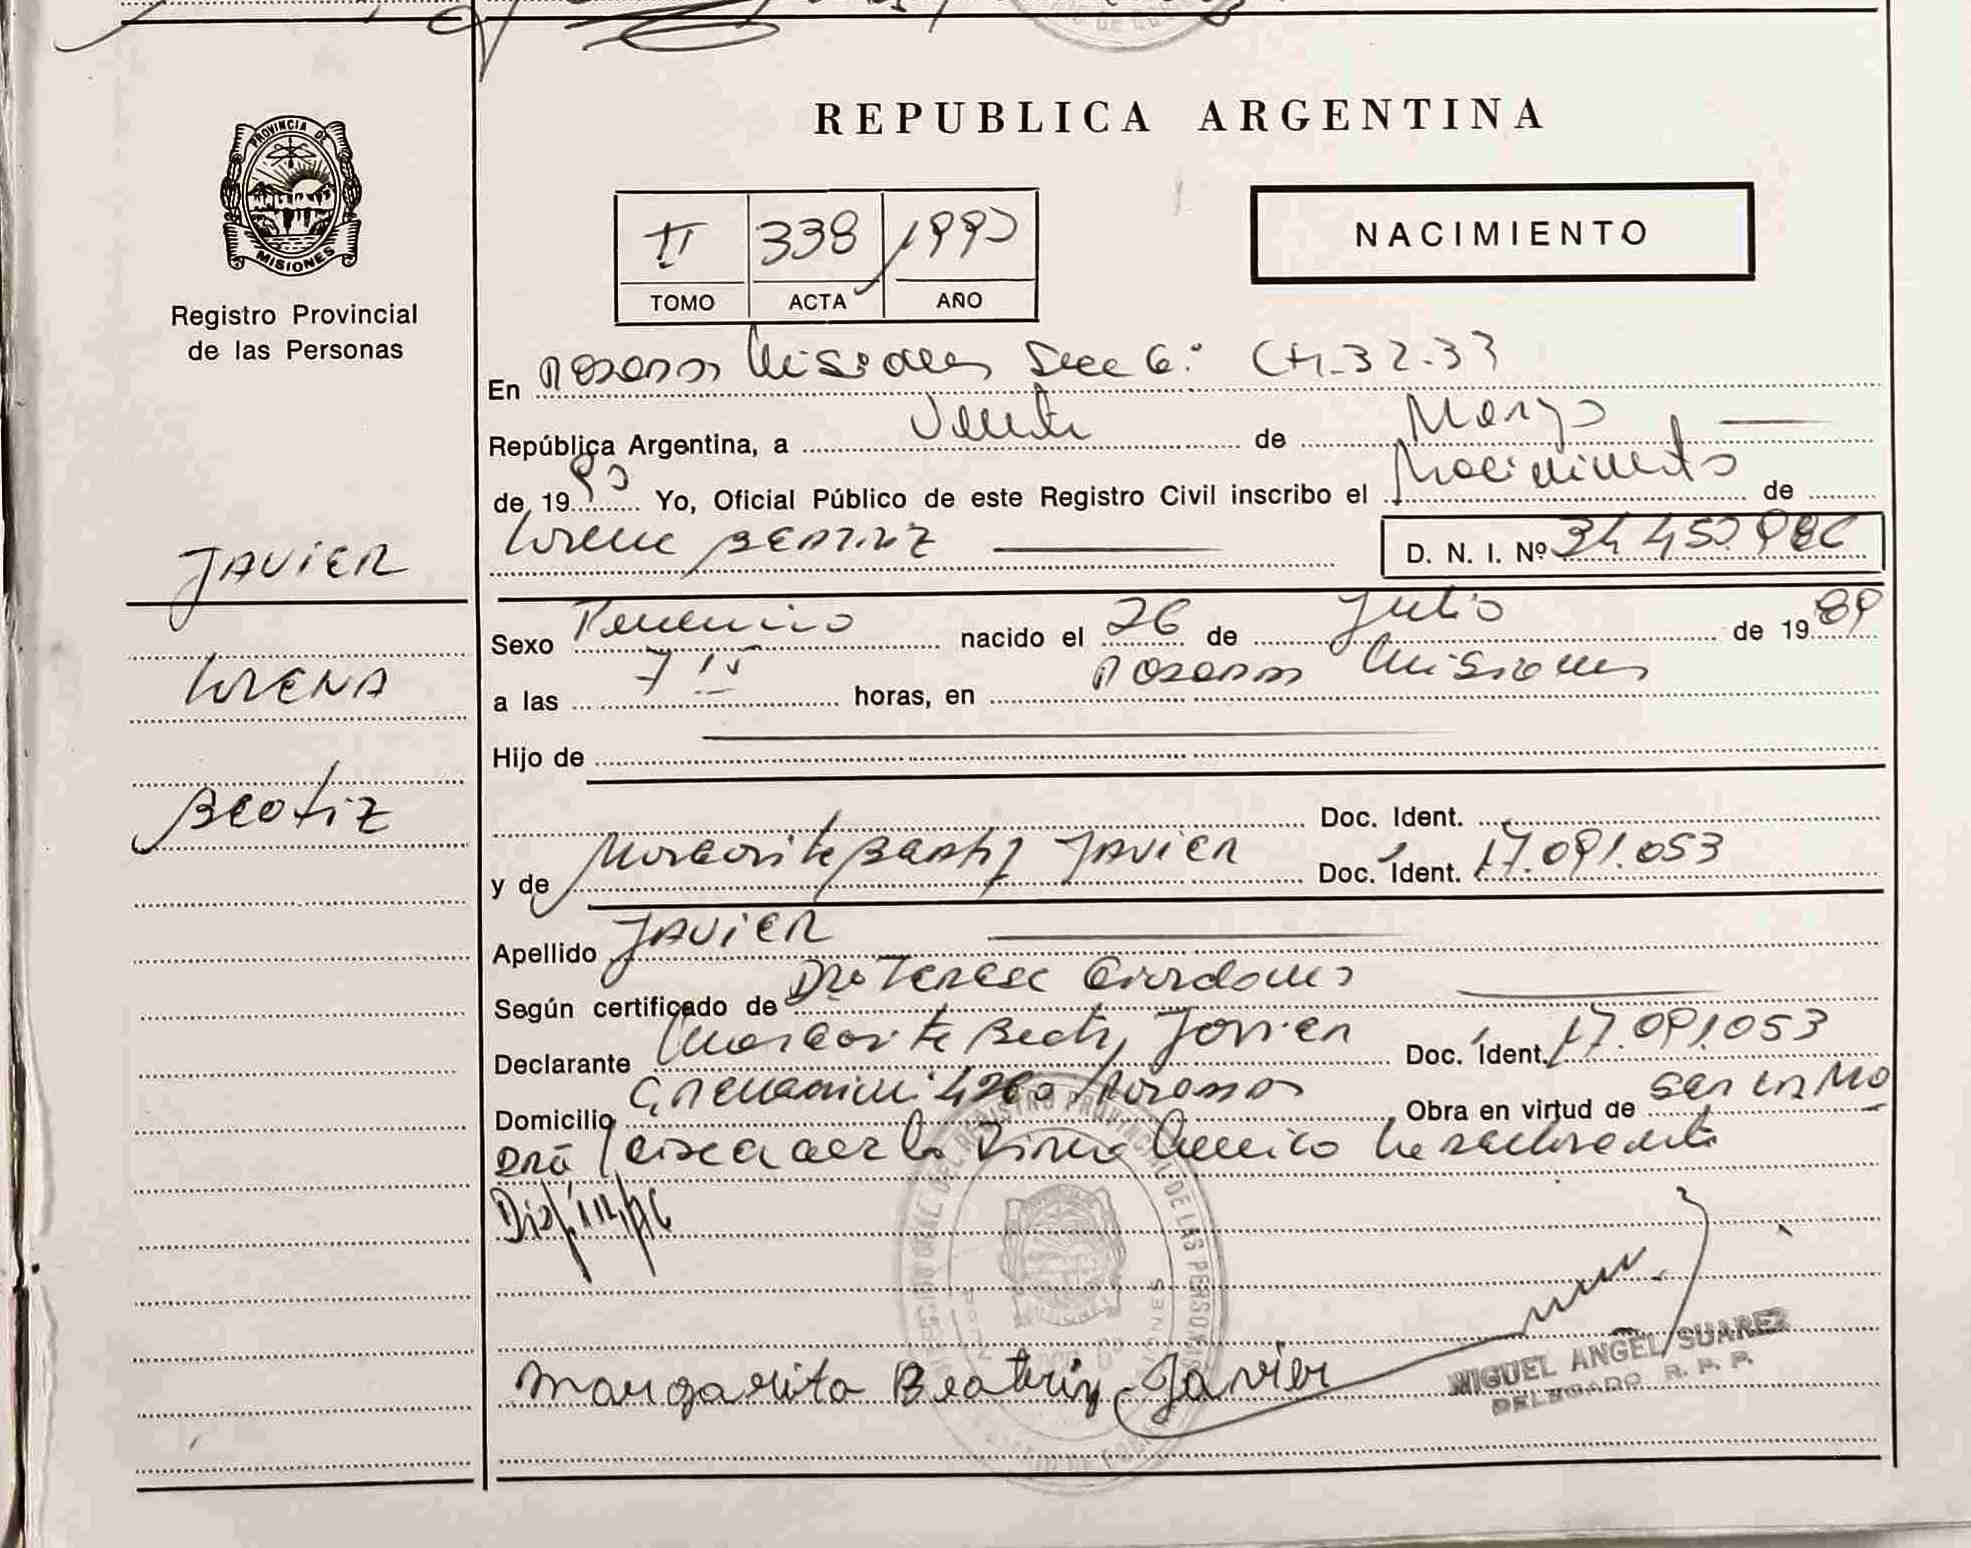 REPUBLICA ARGENTINA
PROVINCIA DE
MISIONES
Registro Provincial
de las Personas
II 338 1990
TOMO ACTA AÑO
NACIMIENTO
En Posadas Misiones Secc 6: CH-32-33
República Argentina, a Veinte de Marzo
de 1990 Yo, Oficial Público de este Registro Civil inscribo el Nacimiento de
Lorena BEATRIZ D. N. I. Nº 34.450.
JAVIER
LORENA
BEATIZ
Sexo Femenino nacido el 26 de Julio de 1989
a las 7 15 horas, en Posadas Misiones
Hijo de
Doc. Ident.
y de Margarita Beatriz JAVIER Doc. Ident. 17.091.053
Apellido JAVIER
Según certificado de Dra Teresa
Declarante Margarita Beatriz Javier Doc. Ident. 17.091.053
Domicilio 4260 Posadas Obra en virtud de
la Firma la declarante
Margarita Beatriz Javier
MIGUEL ANGEL SUAREZ
DELEGADO R. P. P.